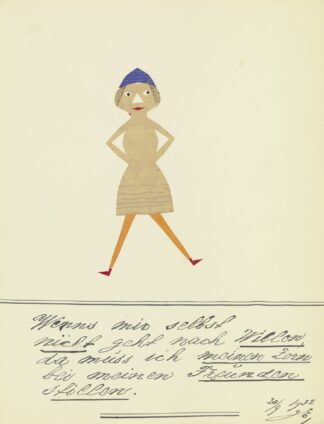 Wenns mir selbst
nicht geht nach Willen,
da muss ich meinen Zorn
bei meinen Freunden
stillen.